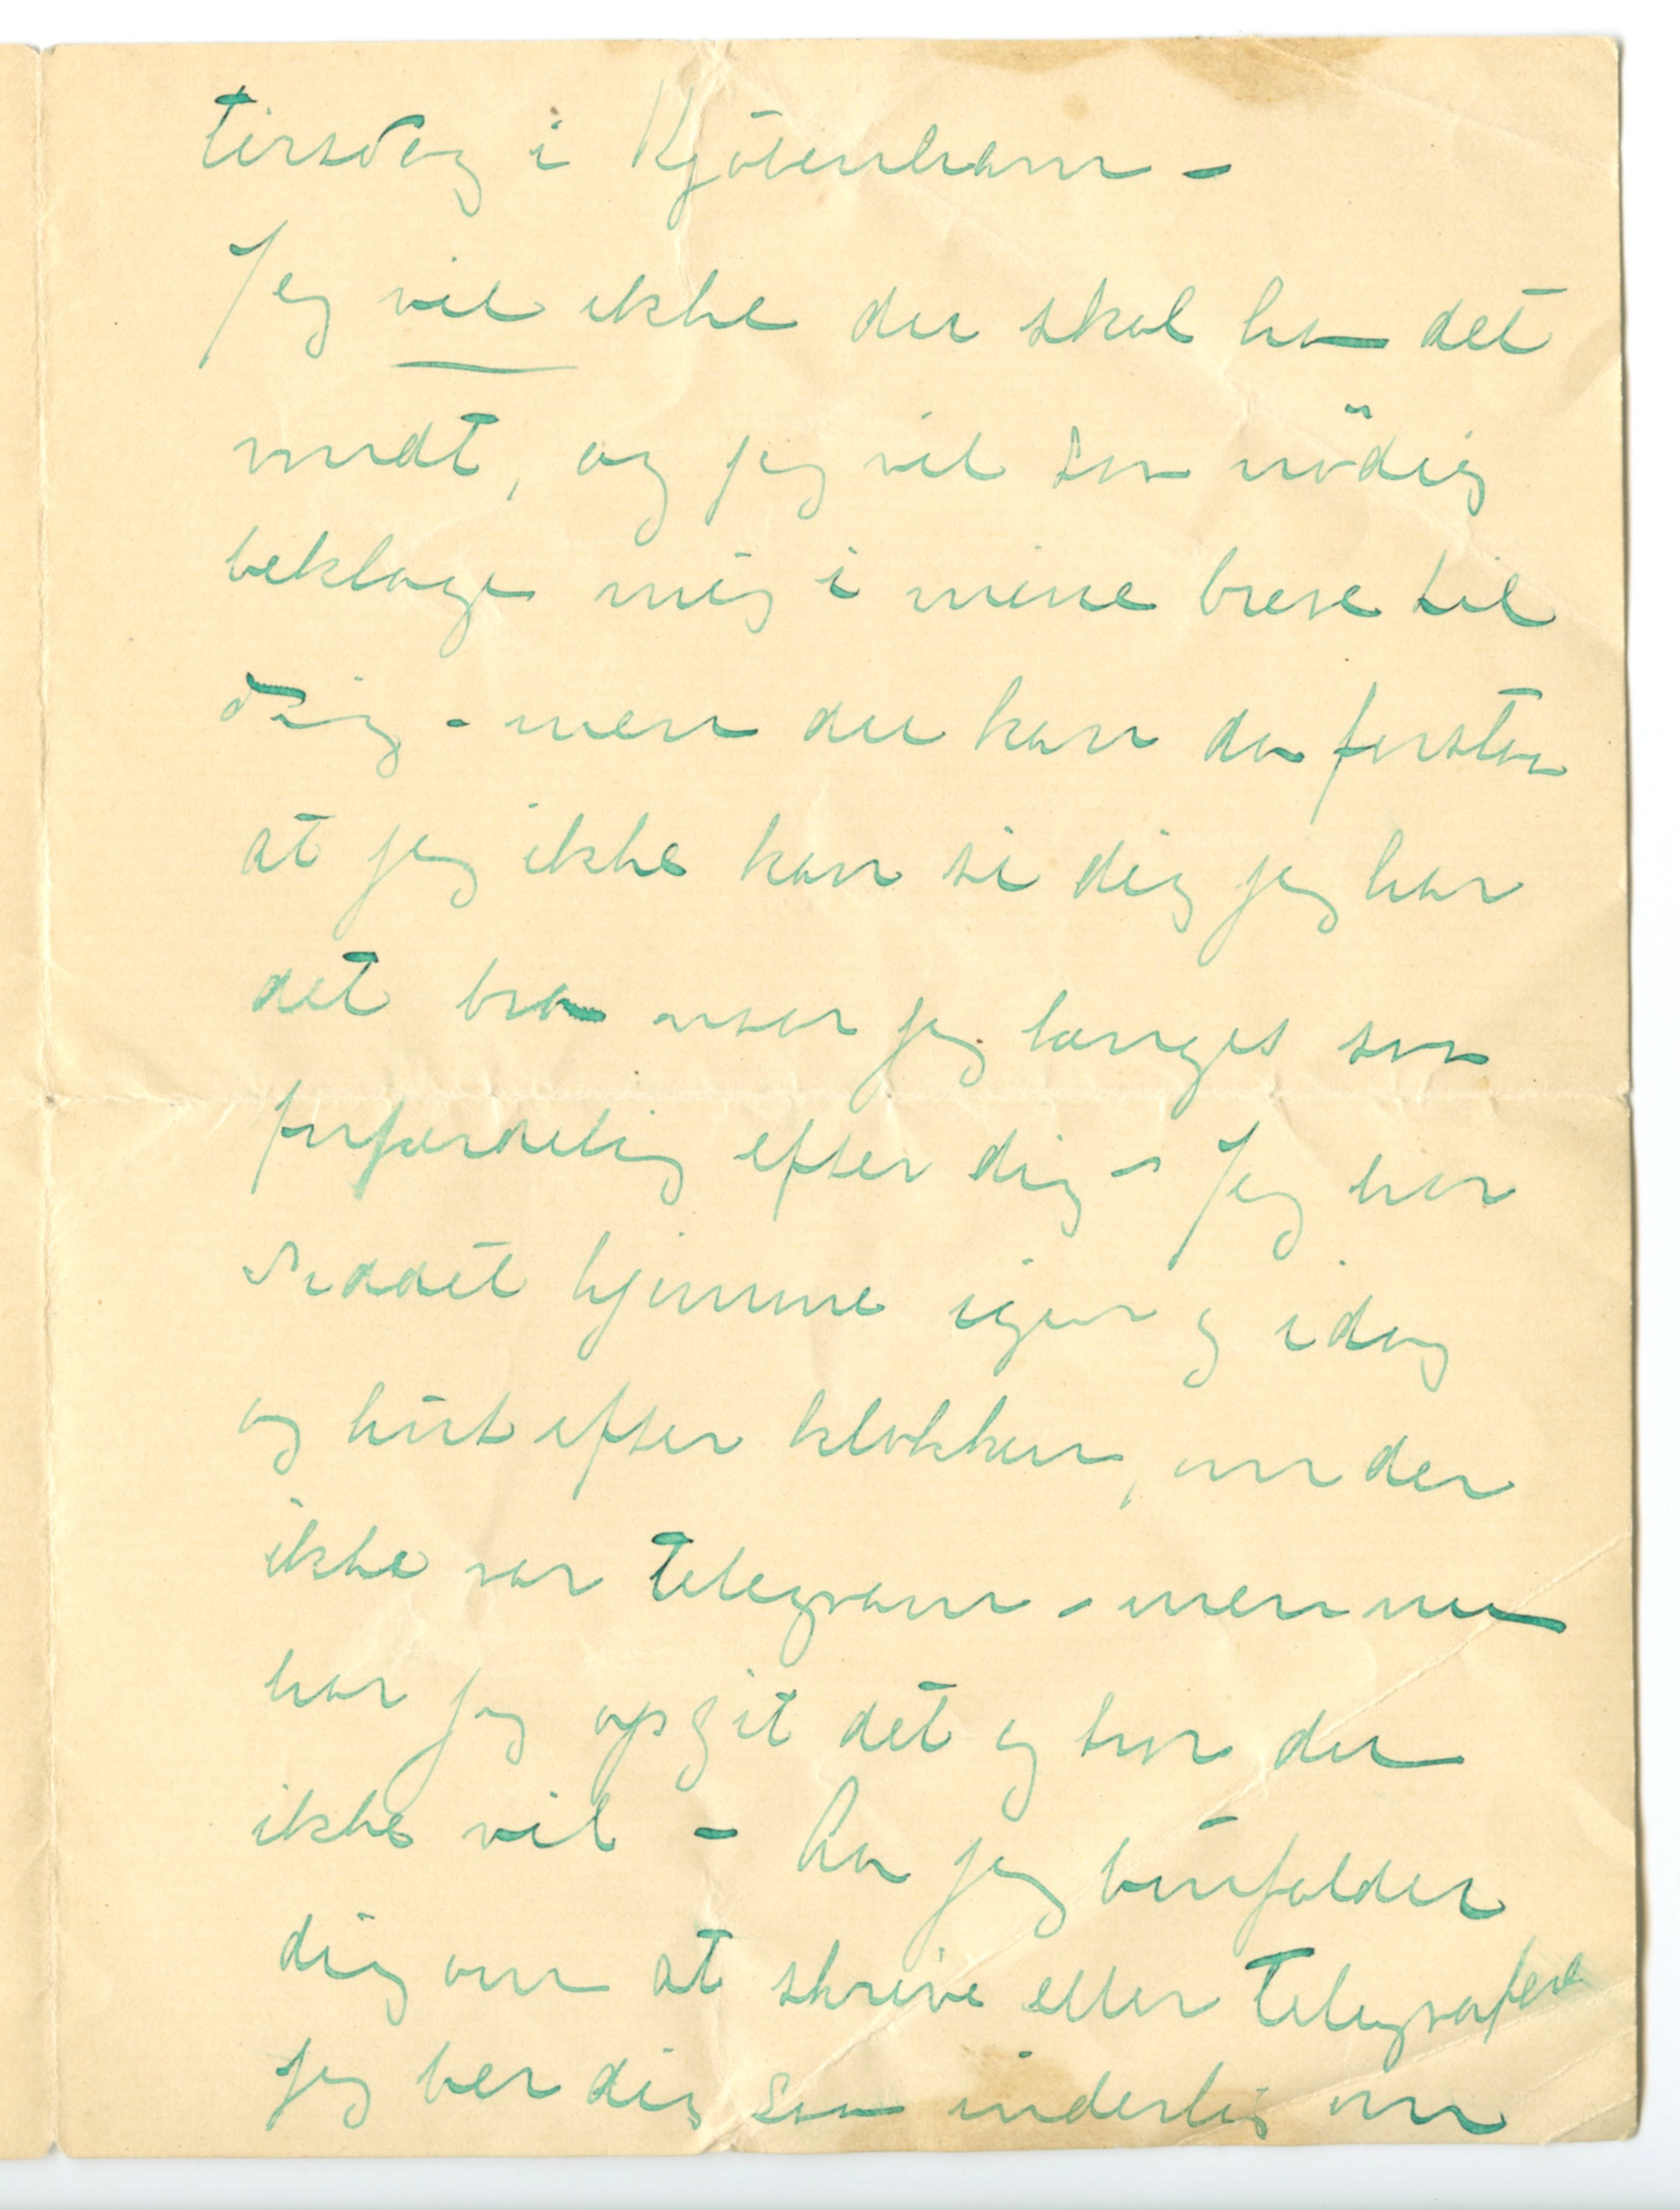 tirsdag i Kjöbenhavn –
Jeg vil ikke du skal ha det
vondt, og jeg vil saa nödig
beklage mig i mine breve til
dig – men du kan da forstaa
at jeg ikke kan si dig jeg har
det bra naar jeg længes saa
forfærdelig efter dig – Jeg har
siddet hjemme igaar og idag
og hört efter klokken, om der
ikke var telegram – men nu
har jeg opgit det og tror du
ikke vil – Aa jeg bönfalder
dig om at skrive eller telegrafere
Jeg ber dig saa inderlig om